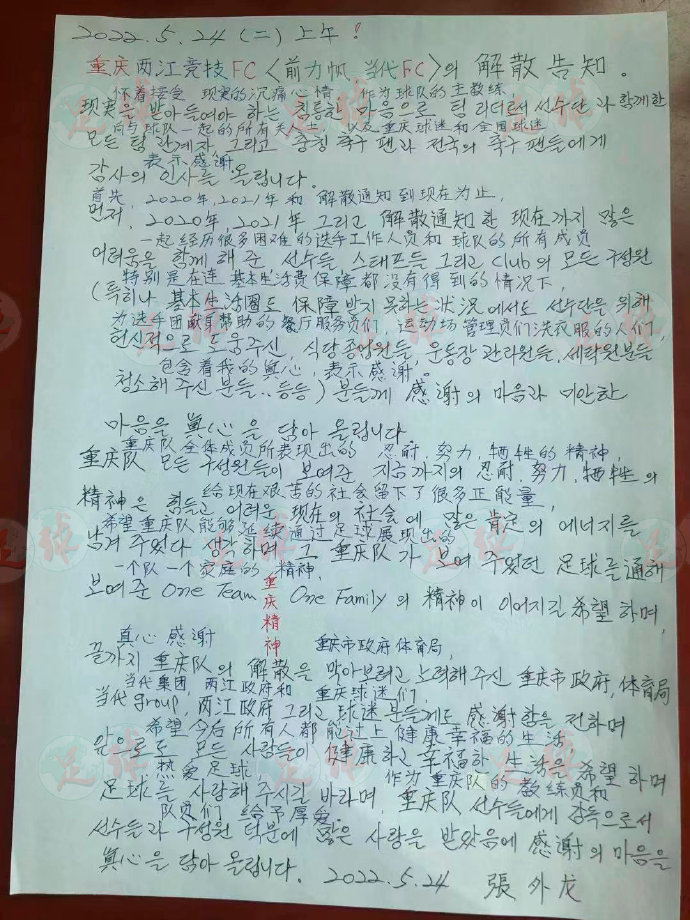 2022.5.24 (二) 上午!
重庆两江竞技FC〈前力帆、当代FC〉의 解散告知。
怀着接受 现实的沉痛心情 作为球队的主教练,
현실을 받아들여야 하는 침통한 마음으로 팀 리더로서 선수단과 함께한
向与球队一起的所有关人士, 以及重庆球迷和全国球迷
모든 팀 관계자, 그리고 충칭 축구 팬과 전국의 축구 팬들에게
表示感谢
감사의 인사를 올립니다.
首先, 2020年,2021年 和 解散通知到现在为止,
먼저, 2020年, 2021年 그리고 解散通知한 현재까지 많은
一起经历很多困难的选手工作人员和球队的所有成员
어려움을 함께해 준 선수들 스태프들 그리고 Club의 모든 구성원
特别是在连基本生活费保障都没有得到的情况下,
(특히나 基本生活圈도 保障받지 못하는 状况에서도 선수단을 위해
为选手团献身帮助的餐厅服务员们, 运动场管理员们洗衣服的人们,
헌신적으로 도움주신, 식당종업원들, 운동장 관리원들, 세탁원분들
包含着我的真心, 表示感谢。
청소해 주신 분들..등등) 분들께 感谢의 마음과 미안한
마음을 真心을 담아 올립니다
重庆队全体成员所表现出的 忍耐, 努力, 牺牲的精神,
重庆队 모든 구성원들이 보여준 지금까지의 忍耐, 努力, 牺牲의
给现在艰苦的社会留下了很多正能量,
精神은 힘들고 어려운 현재의 社会에 많은 肯定의 에너지를
希望重庆队能够延续通过足球展现出的
남겨 주었다 생각하며 그 重庆队가 보여 주었던 足球를 通해
一个队一个家庭的 精神,
보여준 One Team One Family의 精神이 이어지길 希望하며,
重庆精神
真心感谢 重庆市政府体育局,
끝까지 重庆队의 解散을 막아보려고 노력해 주신 重庆市政府, 体育局
当代集团, 两江政府和 重庆球迷们,
当代group, 两江政府 그리고 球迷 분들께도 感谢함을 전하며
希望今后所有人都能过上健康幸福的生活
앞으로도 모든 사람들이 健康하고 幸福한 生活을 希望하며
热爱足球 作为重庆队的教练员和
足球를 사랑해 주시길 바라며 重庆队 선수들에게 감독으로서
队员们 给予厚爱。
선수들과 구성원 덕분에 많은 사랑을 받았음에 感谢의 마음을
真心을 담아 올립니다. 2022.5.24 張外龙